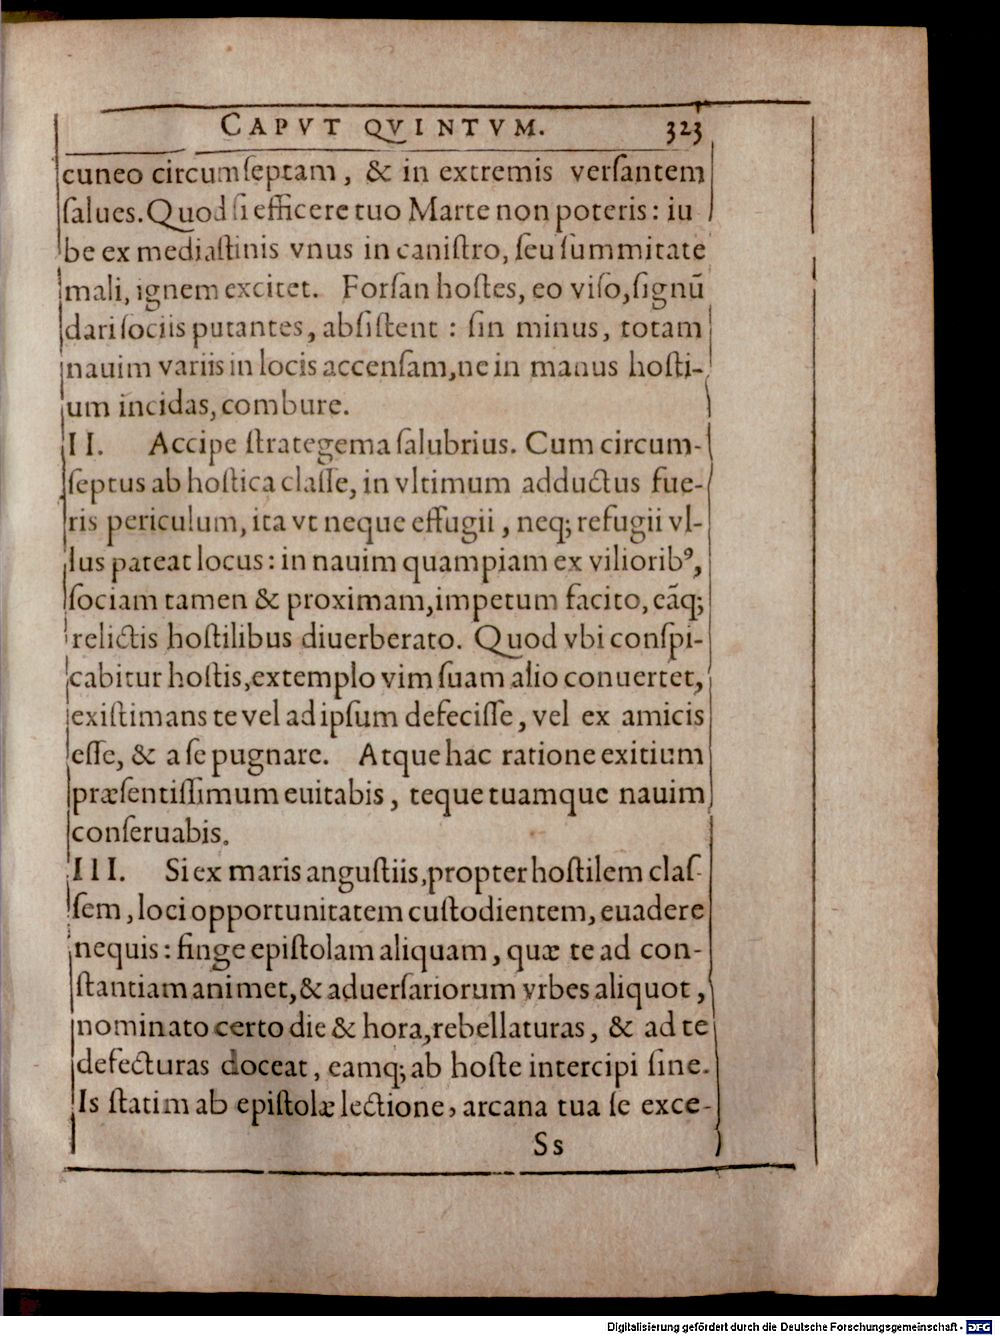 CAPVT QVINTVM. 323
cuneo circumſeptam, & in extremis verſantem
ſalues. Quod ſi efficere tuo Marte non poteris: iu
be ex mediaſtinis vnus in caniſtro, ſeu ſummitate
mali, ignem excitet. Forſan hoſtes, eo viſo, ſignū
dari ſociis putantes, abſiſtent: ſin minus, totam
nauim variis in locis accenſam, ne in manus hoſti-
um incidas, combure.
II. Accipe ſtrategema ſalubrius. Cum circum-
ſeptus ab hoſtica claſſe, in vltimum adductus fue-
ris periculum, ita vt neque effugii, neq; refugii vl-
lus pateat locus: in nauim quampiam ex viliorib⁹,
ſociam tamen & proximam, impetum facito, eāq;
relictis hoſtilibus diuerberato. Quod vbi conſpi-
cabitur hoſtis, extemplo vim ſuam alio conuertet,
exiſtimans te vel ad ipſum defeciſſe, vel ex amicis
eſſe, & a ſe pugnare. Atque hac ratione exitium
præſentiſſimum euitabis, teque tuamque nauim
conſeruabis.
III. Si ex maris anguſtiis, propter hoſtilem claſ-
ſem, loci opportunitatem cuſtodientem, euadere
nequis: finge epiſtolam aliquam, quæ te ad con-
ſtantiam animet, & aduerſariorum vrbes aliquot,
nominato certo die & hora, rebellaturas, & ad te
defecturas doceat, eamq; ab hoſte intercipi ſine.
Is ſtatim ab epiſtolæ lectione, arcana tua ſe exce-
Ss
Digitalisierung gefördert durch die Deutsche Forschungsgemeinschaft - DFG